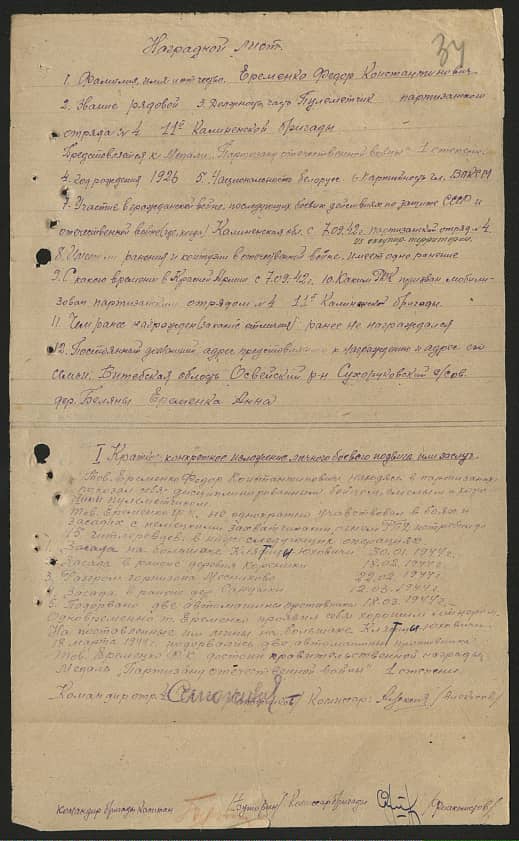 34
Наградной лист.
1. Фамилия, имя и отчество. Еременко Федор Константинович.
2. Звание рядовой 3. Должность часть Пулеметчик партизанского
отряда № 4 11й Калиненской бригады
Представляется к медали „Партизану отечественной войны" 1 степени.
4. Год рождения 1926 5. Национальность белорус 6 Партийность чл. ВЛКСМ
7. Участие в гражданской войне, последующих боевых действиях по защите СССР и
отечественной войне (где, когда) Калиненская обл. с 7.09.42 г. партизанский отряд № 4.
8. Имеет ли ранения и контузии в отечественной войне. Имеет одно ранение
9. С какого времени в Красной Армии с 7.09.42 г. 10. Каким РВК призван мобили-
зован партизанским отрядом № 4 11й Калиненской бригады.
11. Чем ранее награжден ранее не награждался
12. Постоянный домашний адрес представляемого к награждению и адрес его
семьи. Витебская область Освейский р-н Сухоруковский с/сов.
дер. Беляны Еременка Анна
I Кратко конкретное изложение личного боевого подвига или заслуг.
Тов. Еременко Федор Константинович находясь в партизанах
показал себя дисциплинированным бойцом, смелым и хоро-
шим пулеметчиком.
Тов. Еременко Ф. К. неоднократно участвовал в боях и
засадах с немецкими захватчиками, огнем РП истребил до
15 гитлеровцев. в следующих операциях
1. Засада на большаке Клятицы Юховичи 30.01.1944 г.
Засада в районе деревни 18.02.1944 г.
3. Разгром гарнизона 22.02.1944 г.
Засада в районе дер. 12.03.1944 г.
5. Подорвано две автомашины противника 18.03.1944 г.
Одновременно т. Еременко проявил себя хорошим минером.
На поставленные им мины на большаке Клятицы Юховичи
18 марта 1944 г. подорвались две автомашины противника
Тов. Еременко Ф. К. достоин правительственной награды
медаль „Партизану отечественной войны" 1 степени.
Командир отр. Комиссар:
Командир бригады Капитан /Бутовин/ Комиссар бригады